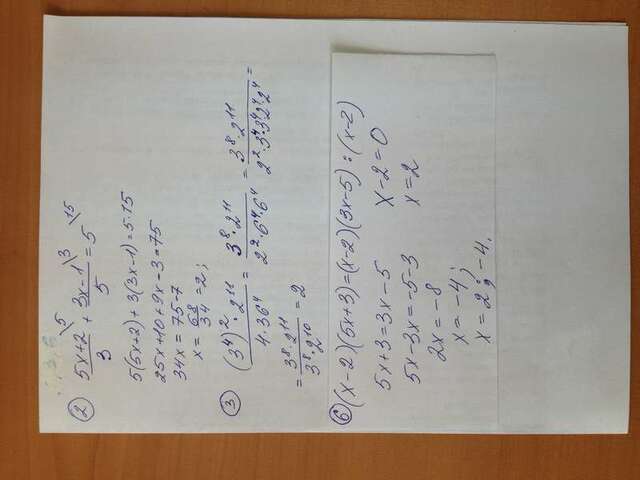 ② (5x+2)/3 \5 + (3x-1)/5 \3 = 5 \15
5(5x+2)+3(3x-1)=5·15
25x+10+9x-3=75
34x=75-7
x = 68/34 = 2;
③ (3⁴)²·2¹¹/4·36⁴ = 3⁸·2¹¹/2²·6⁴·6⁴ = 3⁸·2¹¹/2²·3⁴·3⁴·2⁴·2⁴ =
= 3⁸·2¹¹/3⁸·2¹⁰ = 2
⑥ (x-2)(5x+3)=(x-2)(3x-5) : (x-2)
5x+3=3x-5 x-2=0
5x-3x=-5-3 x=2
2x=-8
x=-4;
x=2; -4.